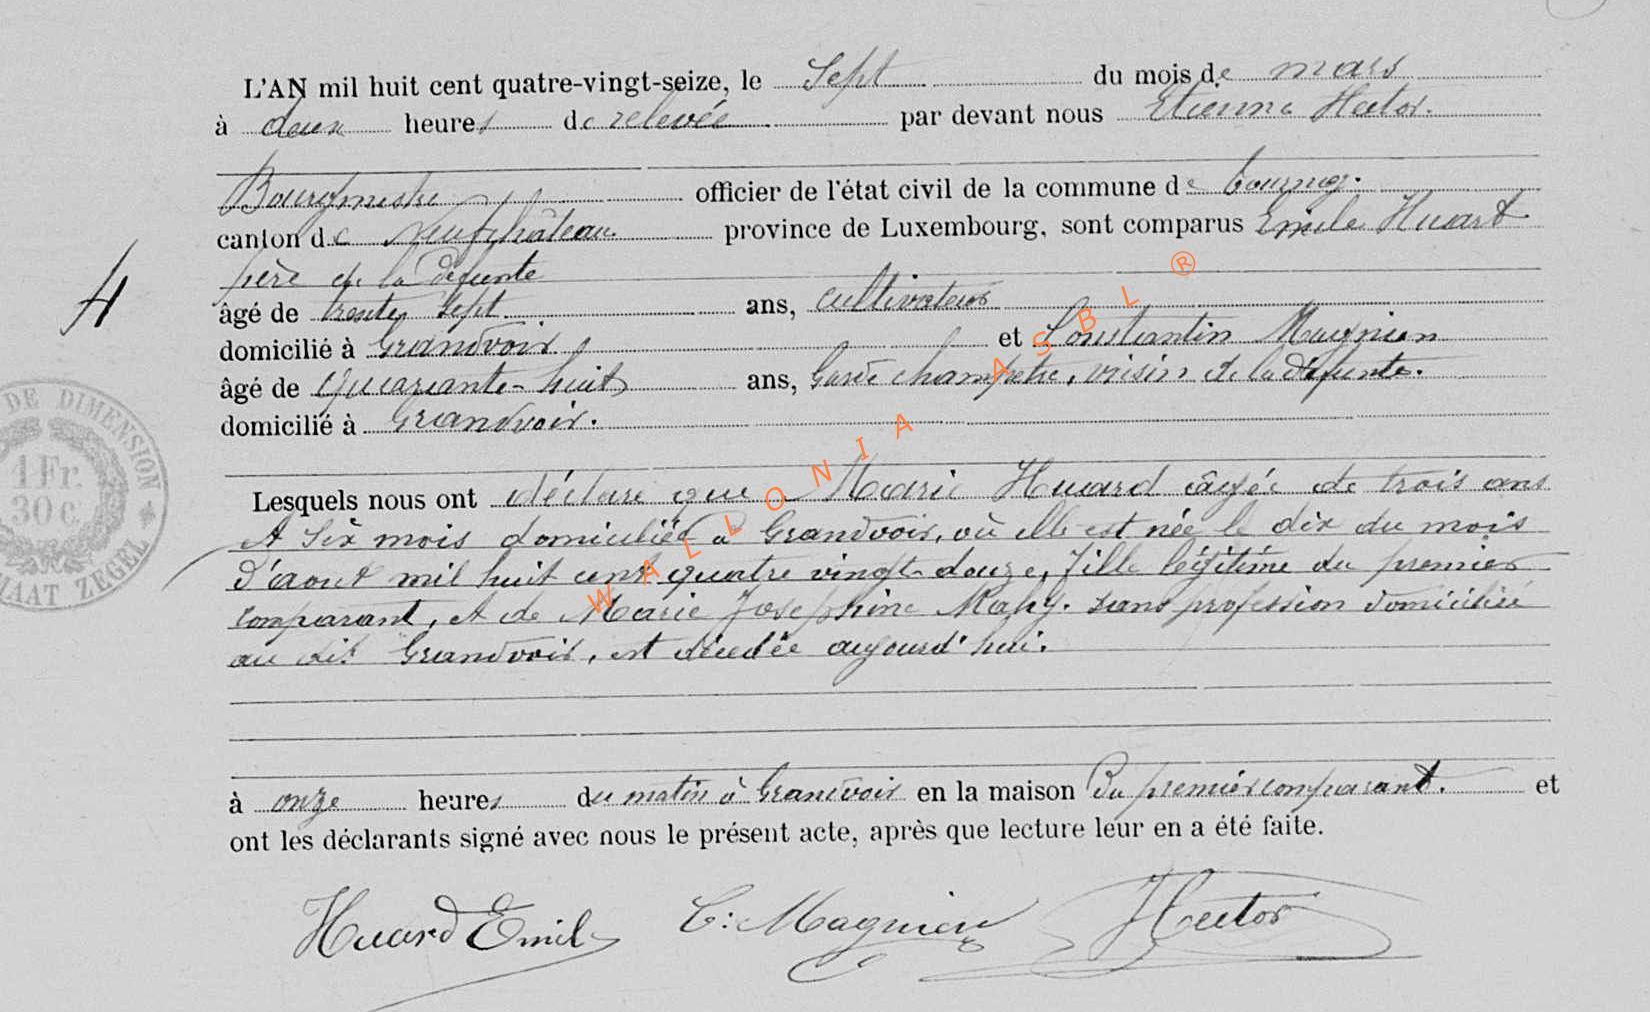 L'AN mil huit cent quatre-vingt-seize, le Sept du mois de mars
à deux heures de relevée par devant nous Etienne Hector.
Bourgmestre officier de l'état civil de la commune de Tournay.
canton de Neufchâteau province de Luxembourg, sont comparus Emile Huart
père de la défunte
âgé de trente sept ans, cultivateur
domicilié à Grandvoir et Constantin Magnien
âgé de quarante-huit ans, Garde champetre, voisin de la défunte.
domicilié à Grandvoir.
4
DE DIMENSION
1 Fr.
30 c.
MAAT ZEGEL
Lesquels nous ont déclaré que Marie Huard âgée de trois ans
et six mois domiciliée à Grandvoir, où elle est née le dix du mois
d'aout mil huit cent quatre vingt-douze, fille légitime du premier
comparant, et de Marie Josephine Mahy. sans profession domiciliée
au dit Grandvoir, est décedée aujourd'hui.
à onze heures du matin à Grandvoir en la maison Du premier comparant. et
ont les déclarants signé avec nous le présent acte, après que lecture leur en a été faite.
Huard Emile C: Magnien Hector
WALLONIA ASBL ®